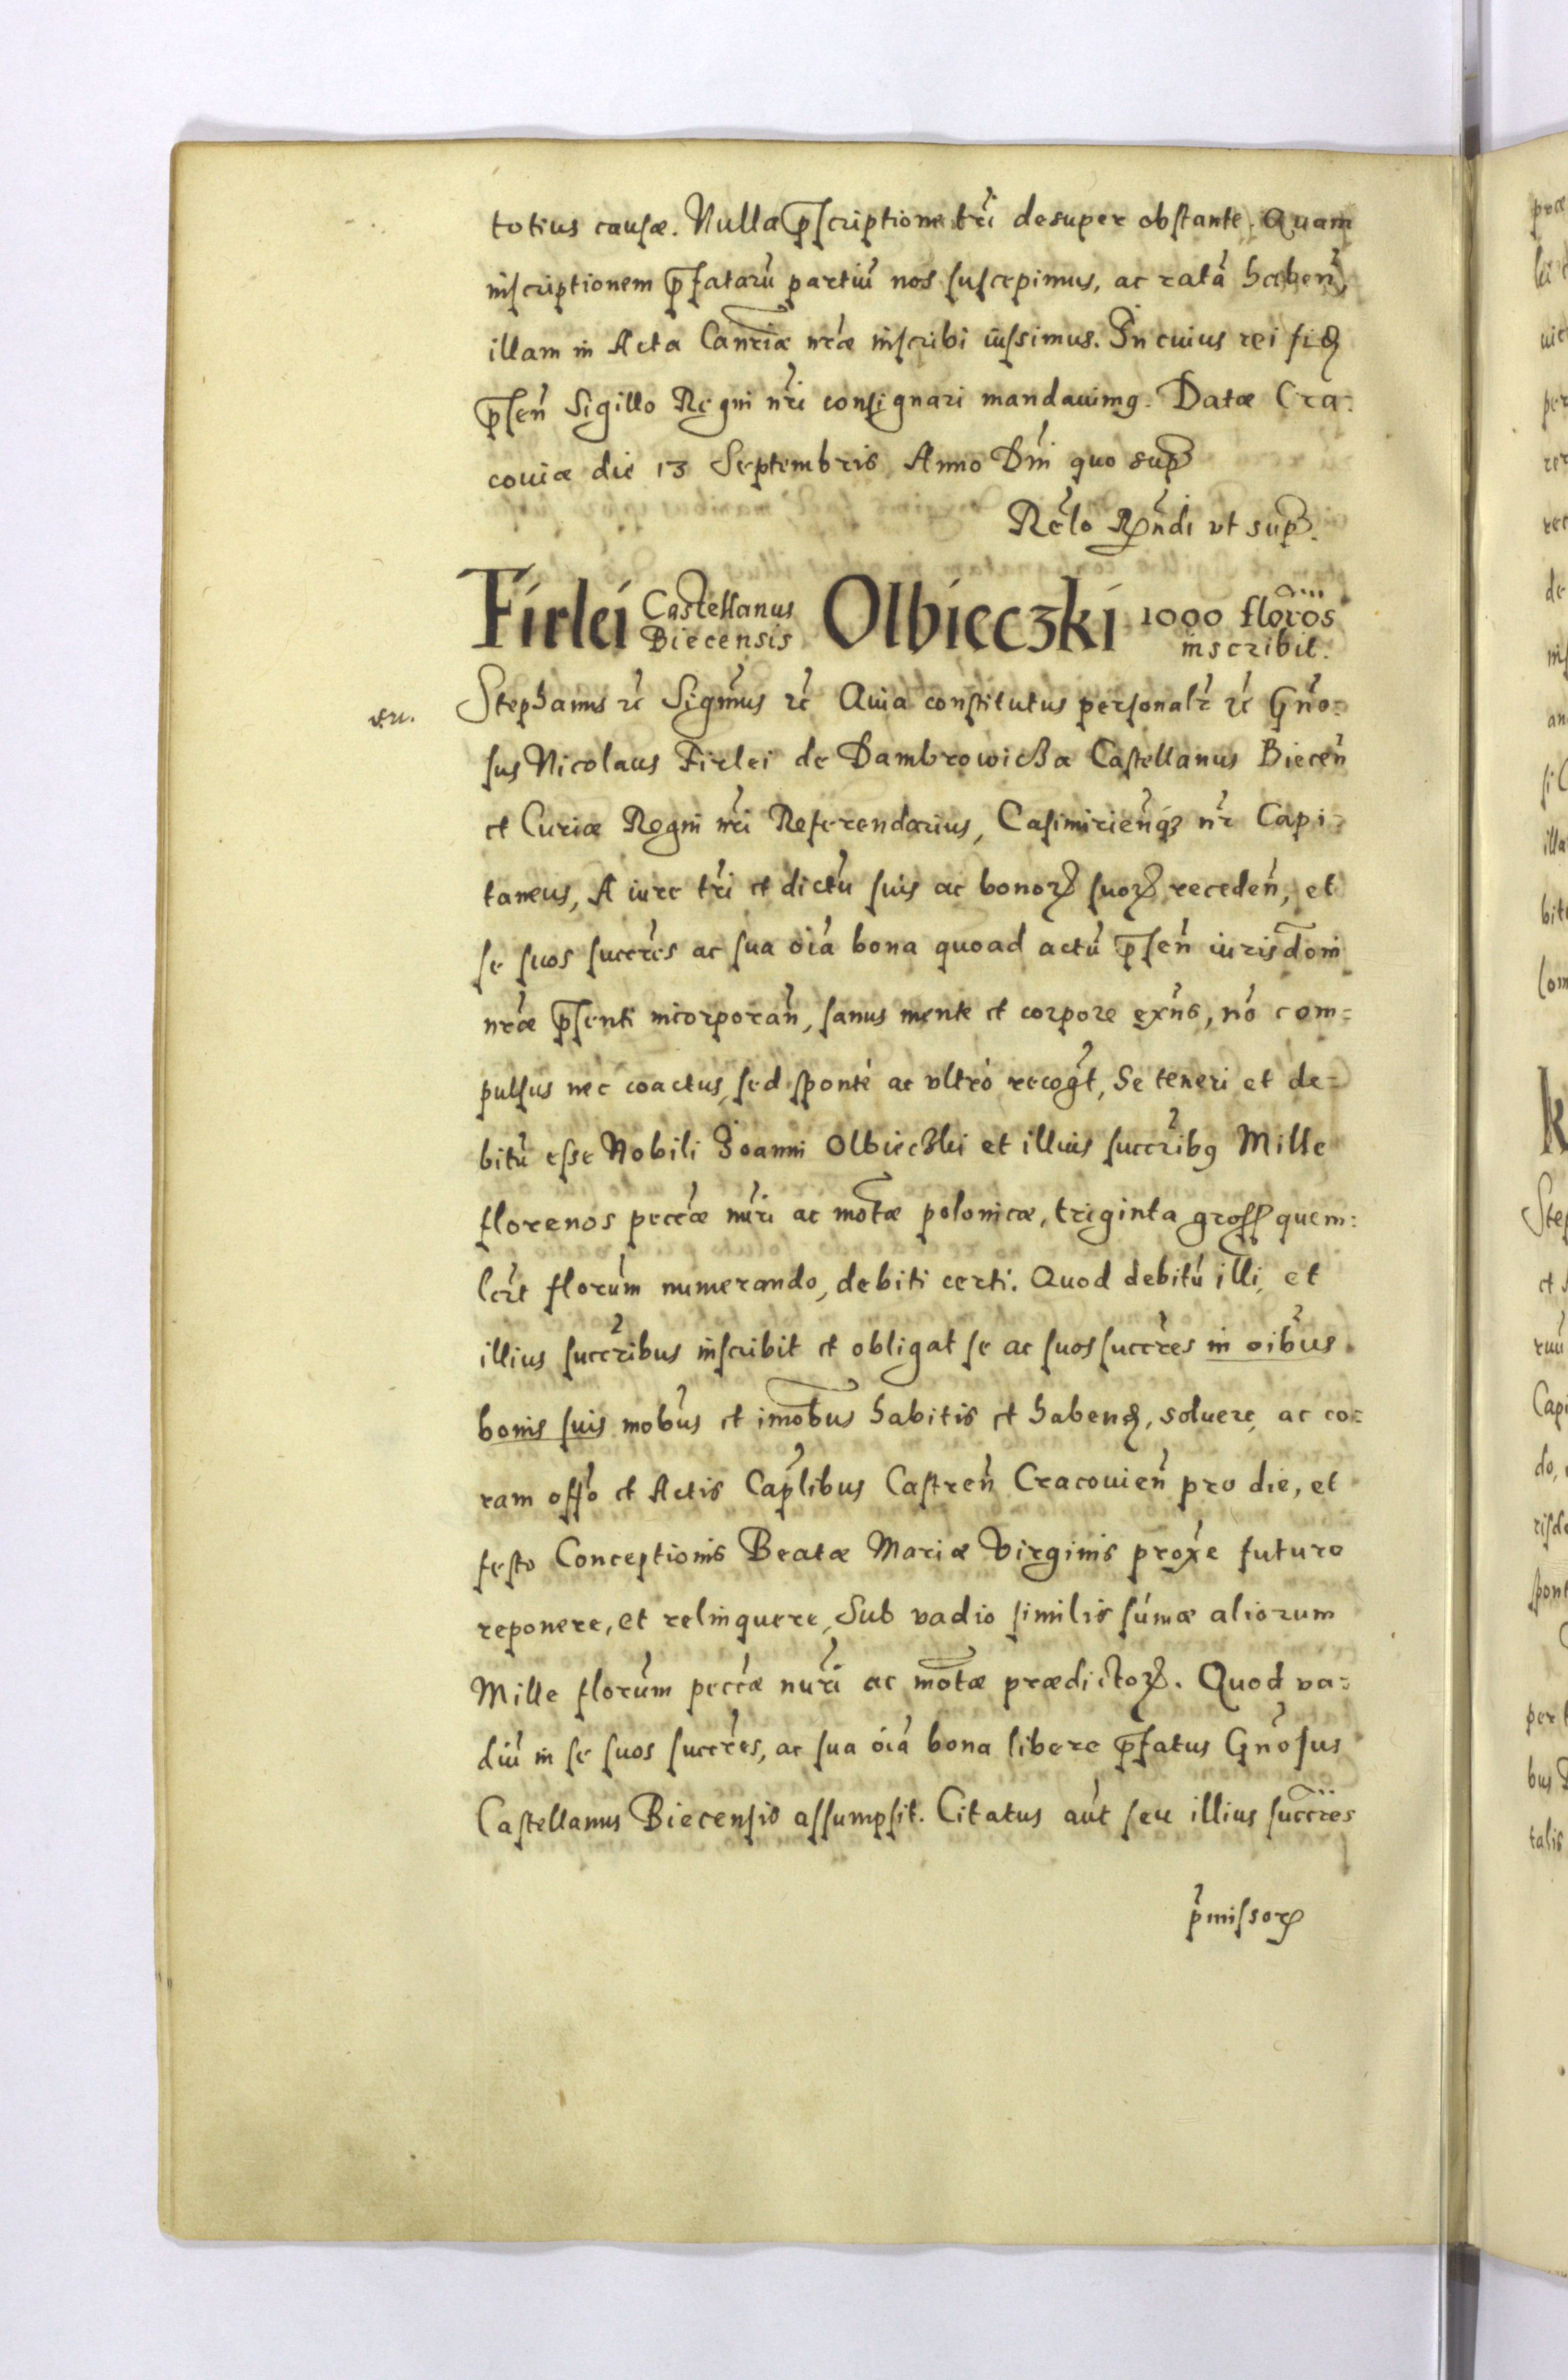 totius causæ. Nulla p̄scriptione tr̃i desuper obstante. Quam
inscriptionem p̄fatarũ partiũ nos suscepimus, ac ratã haben̄,
illam in Acta Canr̃iæ nr̃æ inscribi iussimus. In cuius rei fiđ
p̄sen̄ Sigillo Regni nr̃i consignari mandauimꝯ. Datæ Cra:
couiæ die 13 Septembris Anno Dñi quo sup̃
Rel̃o Rn̄di vt sup̃.
Firlei Castellanus Biecensis Olbieczki 1000 florõs inscribit.
Stephanus ꝛc̃ Sigm̃us ꝛc̃ Quia constitutus personalr̃ ꝛc̃ Gn̄o:
sus Nicolaus Firlei de Dambrowicza Castellanus Biecen̄
et Curiæ Regni nr̃i Referendarius, Casimirien̄qꝫ nr̃ Capi:
taneus, A iure tr̃i et dictũ suis ac bonoꝝ suoꝝ receden̄, et
se suos succr̃es ac sua oĩa bona quoad actũ p̄sen̄ iurisdōni
nr̃æ p̄senti incorporan̄, sanus mente et corpore exñs, nõ com=
pulsus nec coactus, sed sponté ac vltró recog̃t, Se teneri et de=
bitũ esse Nobili Joanni Olbieczki et illius succr̃ibꝯ Mille
florenos pecc̃æ nũri ac mo͠tæ polonicæ, triginta gross quem:
lr̃t flor̃um numerando, debiti certi. Quod debitũ illi, et
illius succr̃ibus inscribit et obligat se ac suos succr̃es in oĩbus
bonis suis mob̃us et im̃ob̃us habitis et habenđ, soluere, ac co=
ram off̃o et Actis Cap̃libus Castren̄ Cracouien̄ pro die, et
festo Conceptionis Beatæ Mariæ Virginis prox̃e futuro
reponere, et relinquere, Sub vadio similis sum̃æ aliorum
Mille flor̃um pecc̃æ nur̃i ac mo͠tæ prædictoꝝ. Quod va:
diũ in se suos succr̃es, ac sua oĩa bona libere p̄fatus Gn̄osus
Castellanus Biecensis assumpsit. Citatus aũt seu illius succr̃es
p̃missoꝝ